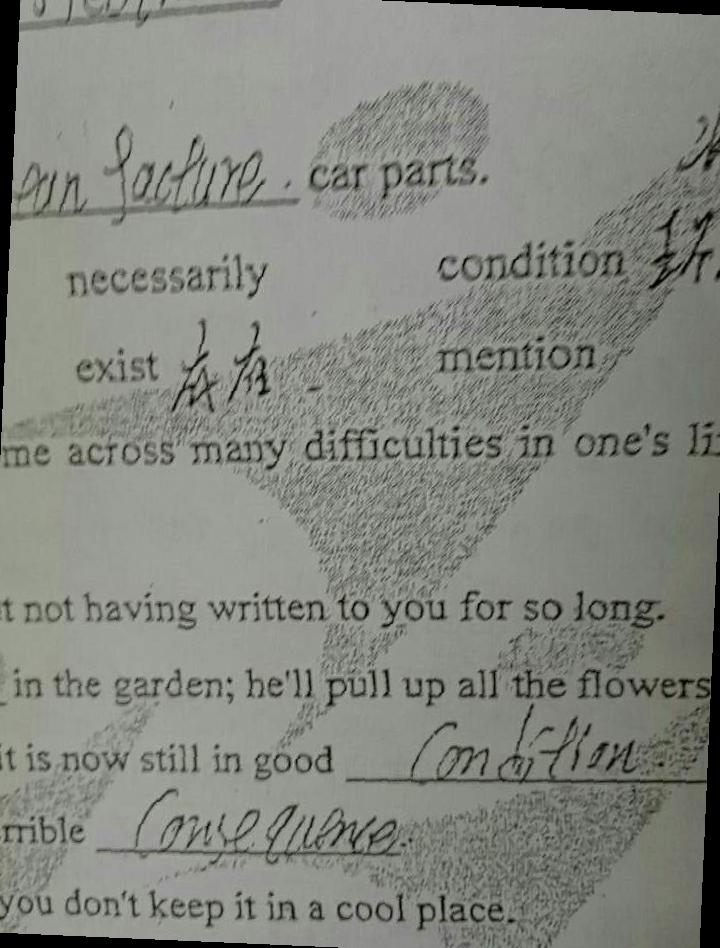 facture. car parts.
necessarily condition
exist 存在 mention
me across many difficulties in one's
t not having written to you for so long.
in the garden; he'll pull up all the flowers
it is now still in good Condition.
rrible Consequence.
you don't keep it in a cool place.